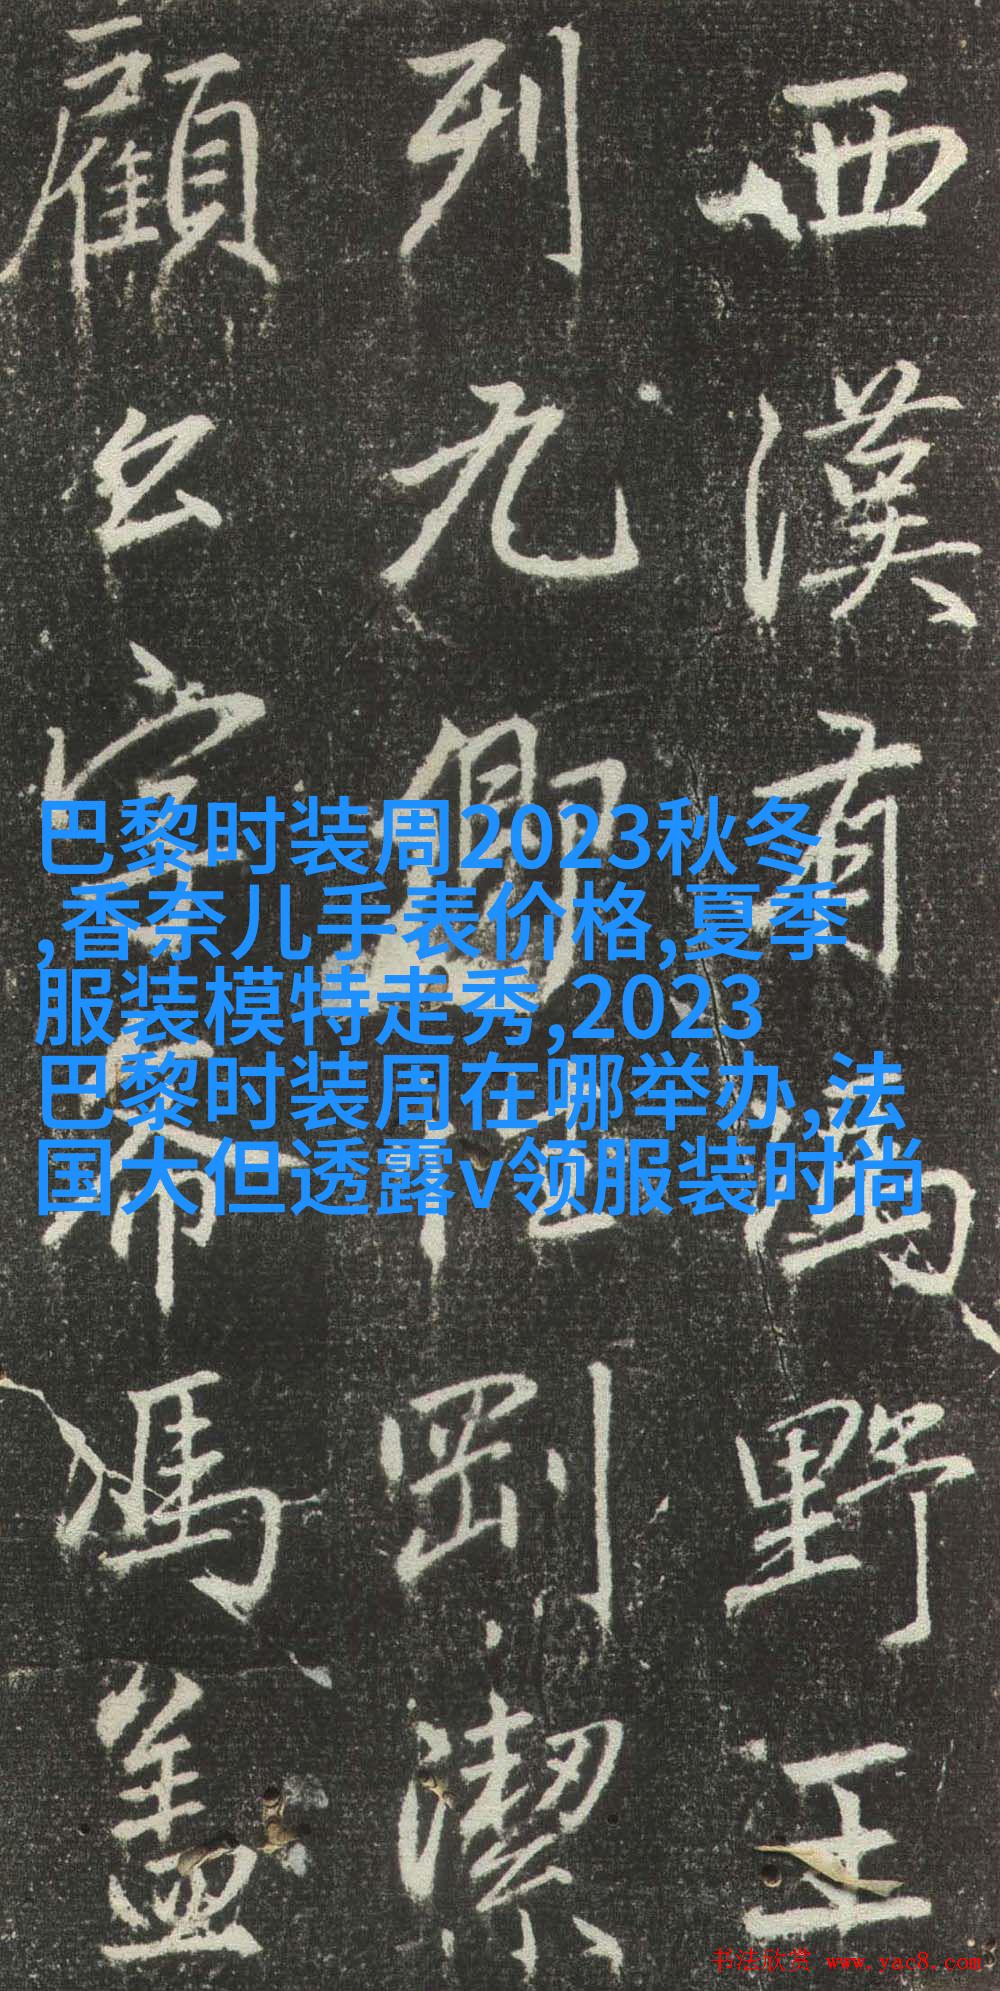 西漢有馮野王
列九卿剛潔
顧宣帝馮盖
巴黎时装周2023秋冬
,香奈儿手表价格,夏季
服装模特走秀,2023
巴黎时装周在哪举办,法
国大但透露v领服装时尚
书法欣赏 www.yac8.com